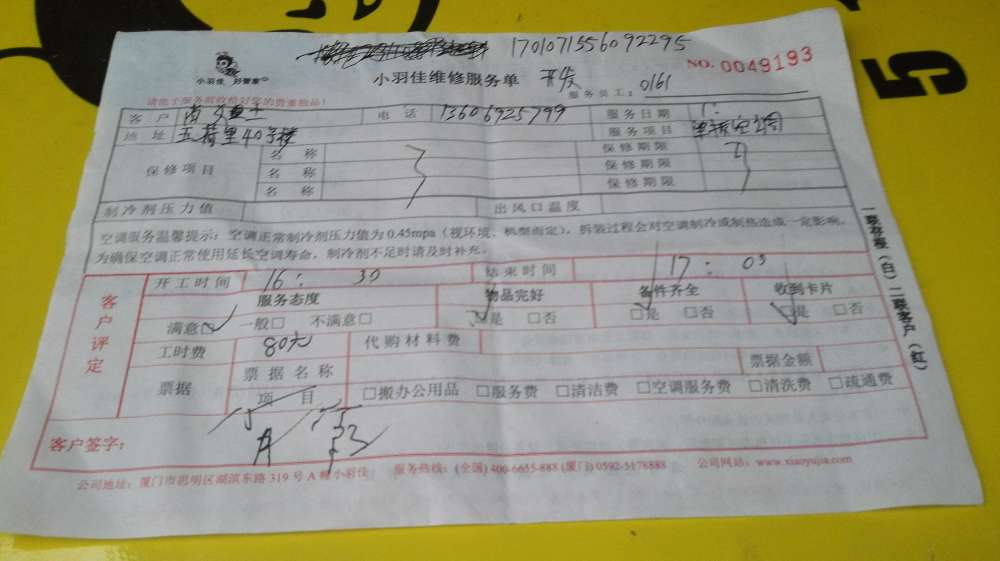 1701071556092295
小羽佳 好管家
小羽佳维修服务单
NO. 0049193
服务员工: 0161
请您于服务前收拾好您的贵重物品!
客户 电话 13606925799 服务日期
地址 五荷里40号楼 服务项目 空调
保修项目 名称 保修期限
名称 保修期限
名称 保修期限
制冷剂压力值 出风口温度
空调服务温馨提示:空调正常制冷剂压力值为0.45mpa(视环境、机型而定),拆装过程会对空调制冷或制热造成一定影响,
为确保空调正常使用延长空调寿命,制冷剂不足时请及时补充。
一联存根(白)二联客户(红)
客户评定
开工时间 16:30 结束时间 17:03
服务态度 物品完好 备件齐全 收到卡片
满意□ 一般□ 不满意□ □是 □否 □是 □否 □是 □否
工时费 80元 代购材料费
票据 票据名称 票据金额
项目 □搬办公用品 □服务费 □清洁费 □空调服务费 □清洗费 □疏通费
客户签字:
公司地址:厦门市思明区湖滨东路319号A幢小羽佳 服务热线:(全国)400-6655-888(厦门)0592-5178888 公司网站:www.xiaoyujia.com